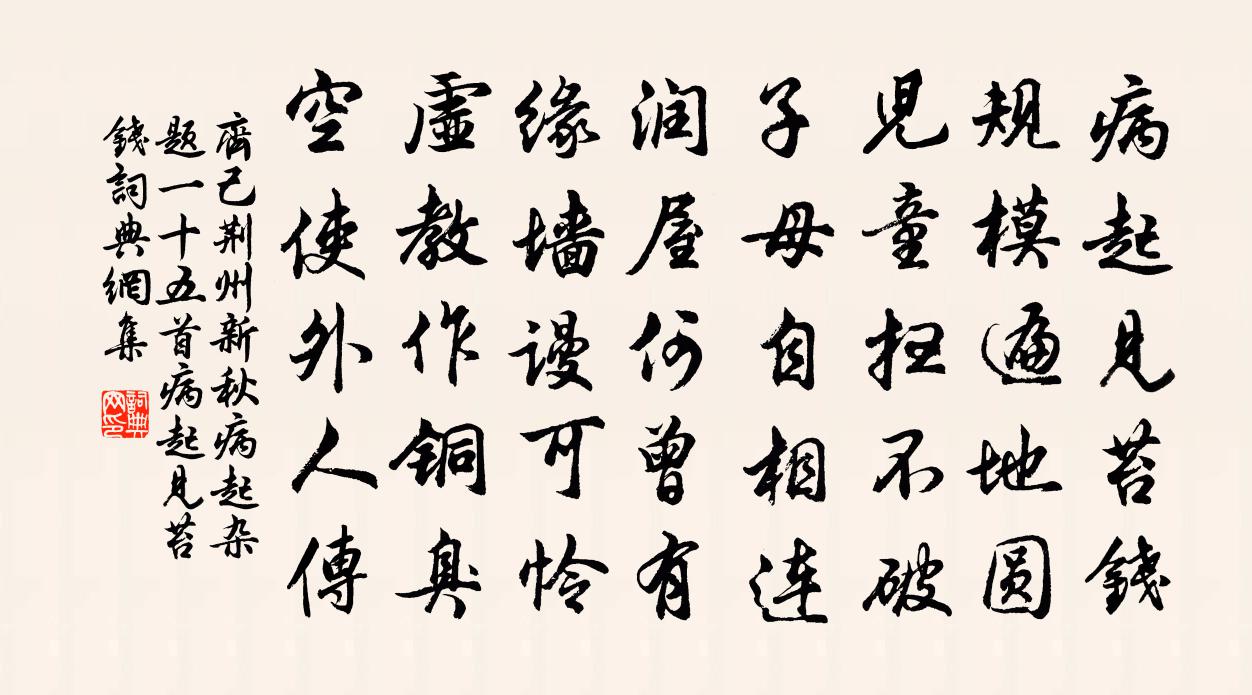 病起见苔錢
規模遍地圆
児童扭不破
子母自相连
润屋何曾有
缘墙谩可怜
虚教作铜臭
空使外人傳
齊己荆州新秋病起杂
题一十五首病起见苔
錢詞典網集
詞典网印